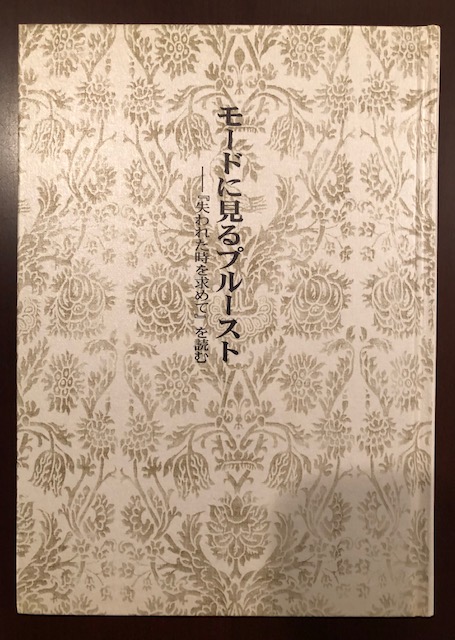 モードに見るプルースト
──『失われた時を求めて』を読む